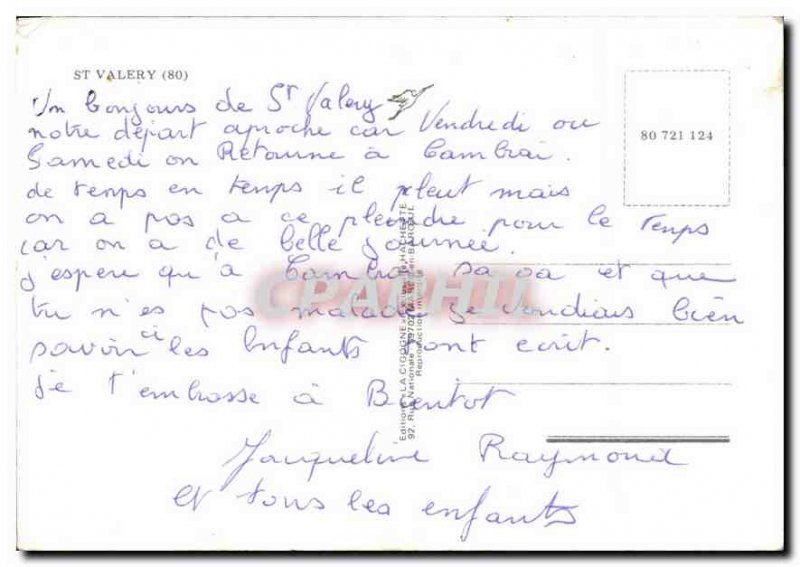 ST VALERY (80)
80 721 124
Un bonjours de St Valery
notre départ aproche car Vendredi ou
Samedi on Retourne à Cambrai.
de temps en temps il pleut mais
on a pas a ce pleindre pour le temps
car on a de belle journée.
j'espere qu'à Cambrai sa va et que
tu n'es pas malade je voudiais bien
savoir ci les Enfants vont ecrit.
je t'embrasse à Bientot
Jacqueline Raymond
et tous les enfants
Editions «LA CIGOGNE»
92, Rue Nationale
Reproduction
CPAPHIL